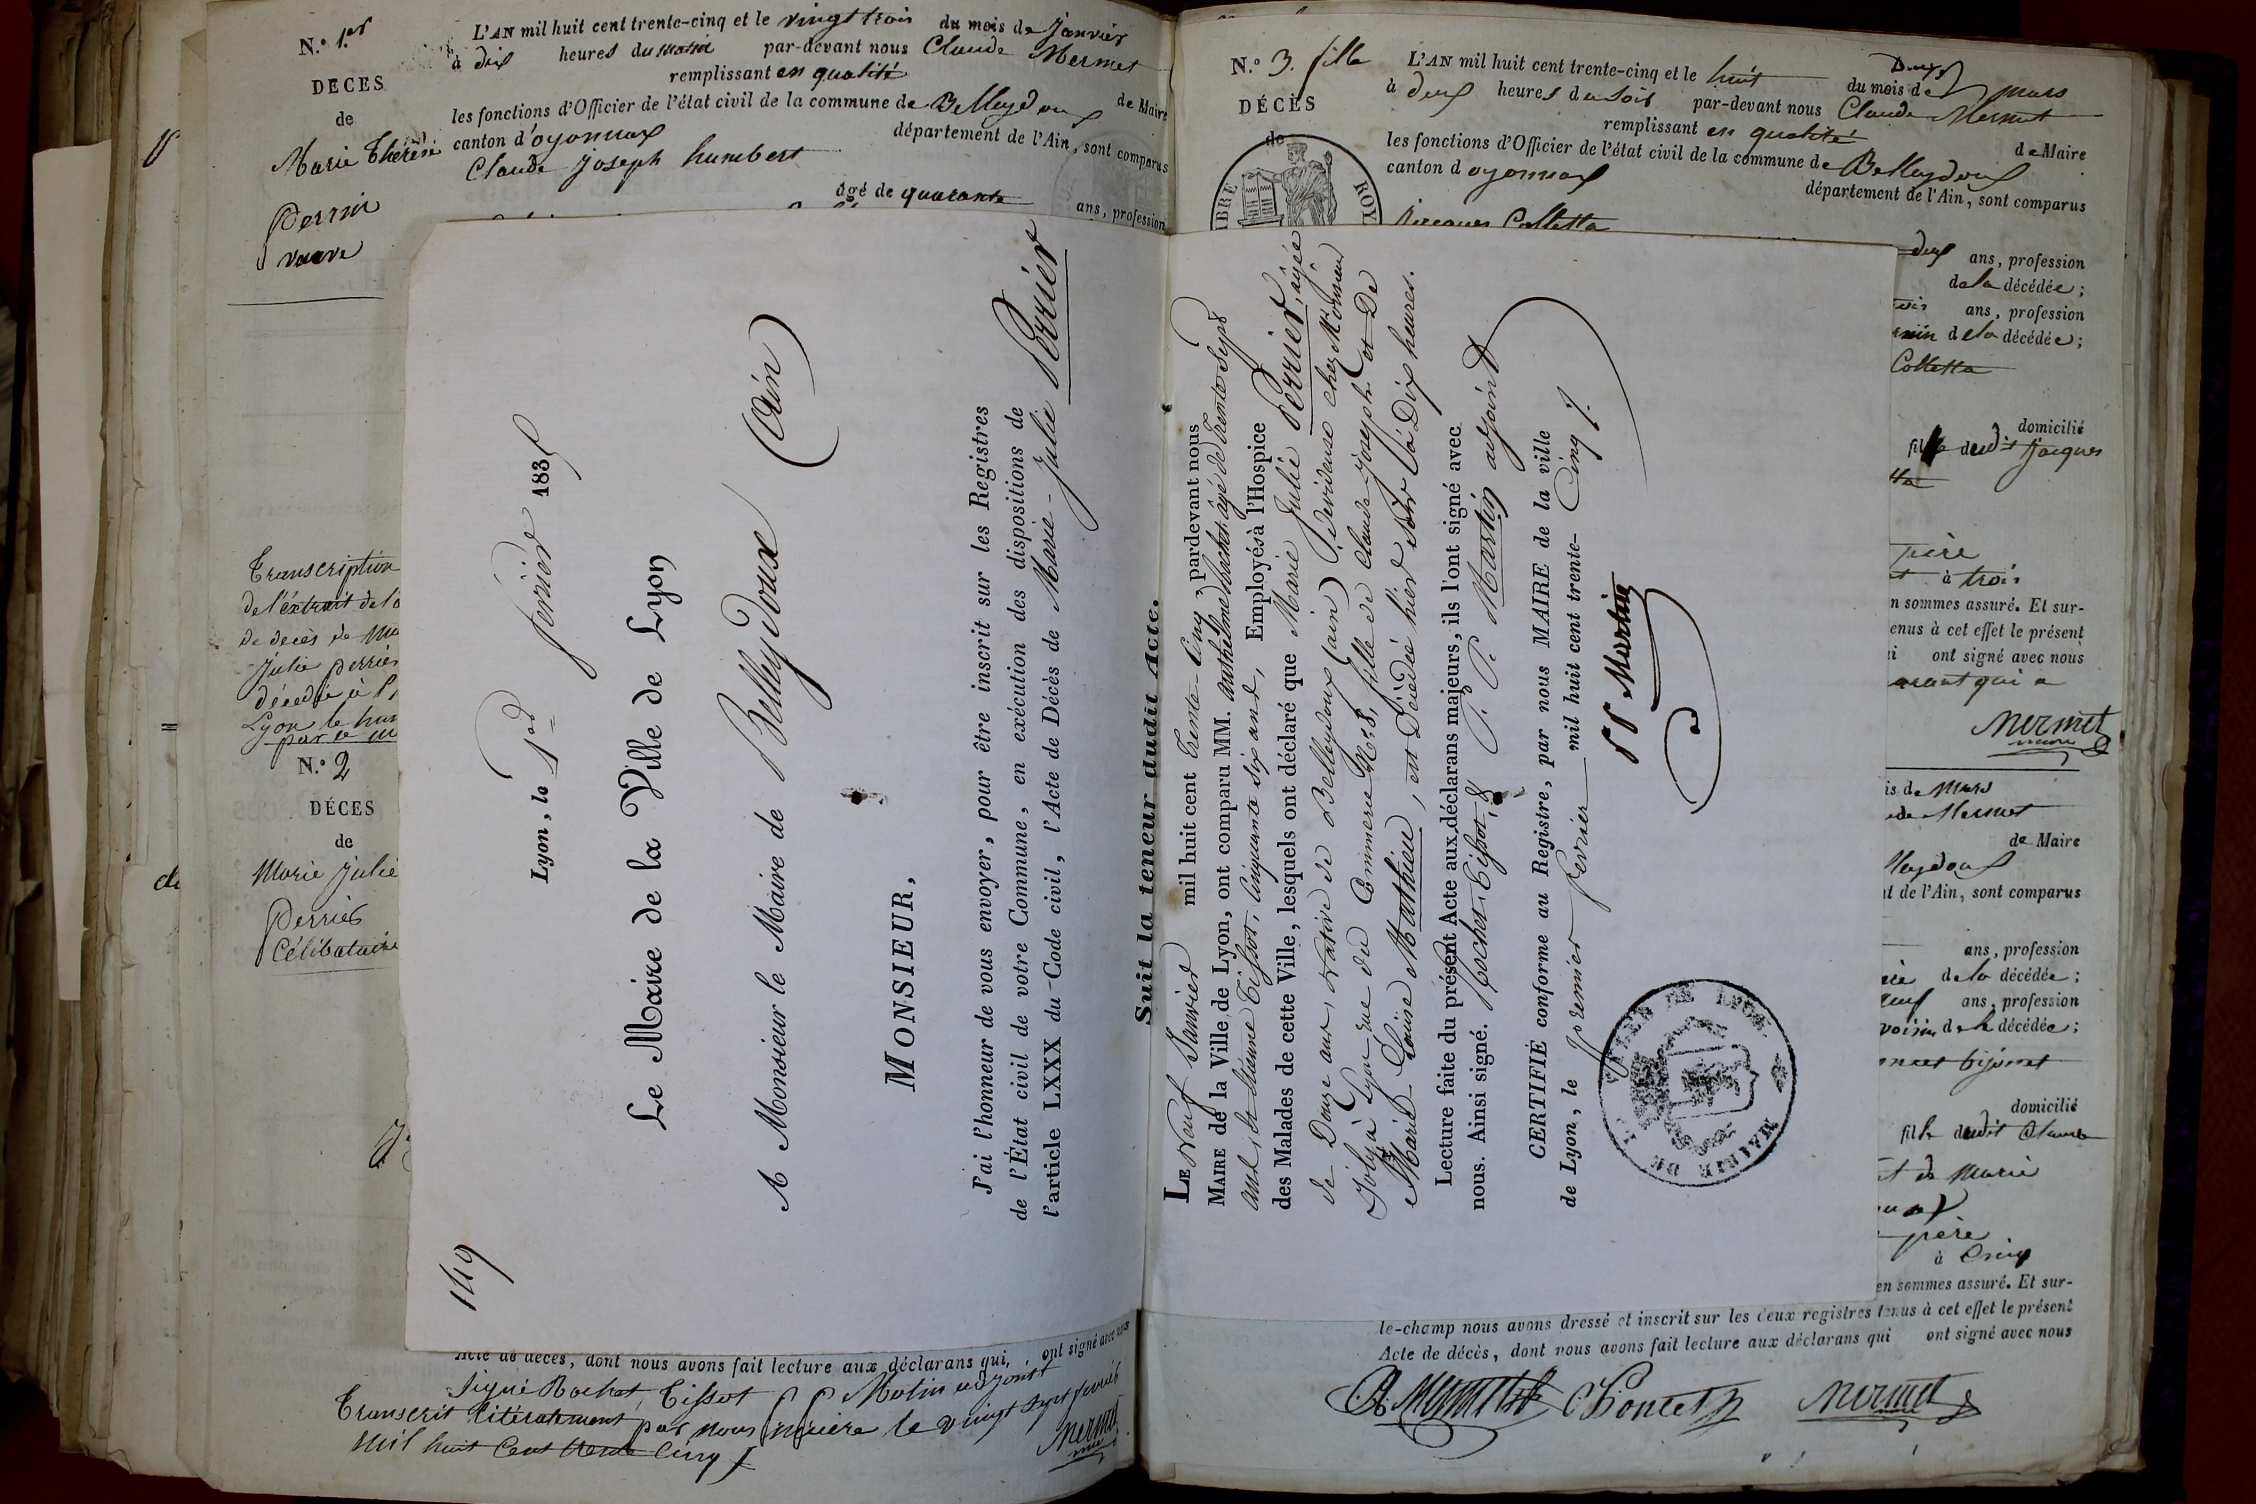 N.° 1.er
DECES
de
Marie Thérèse
Perrin
veuve
L'AN mil huit cent trente-cinq et le vingt trois du mois de Janvier
à dix heures du matin par-devant nous Claude Mermet
remplissant en qualité de Maire
les fonctions d'Officier de l'état civil de la commune de Belleydoux
canton d'oyonnax département de l'Ain, sont comparus
Claude Joseph humbert
âgé de quarante ans, profession
Transcription
de l'extrait de l'a
de decès de Ma
Julie perrier
décedée à l'
Lyon le huit
par le m
N.° 2
DÉCES
de
Marie Julie
Perrier
Célibataire
149
Lyon, le 1er fevrier 1835
Le Maire de la Ville de Lyon
A Monsieur le Maire de Belleydoux (Ain)
MONSIEUR,
J'ai l'honneur de vous envoyer, pour être inscrit sur les Registres
de l'État civil de votre Commune, en exécution des dispositions de
l'article LXXX du Code civil, l'Acte de Décès de Marie-Julie Perrier
Suit la teneur dudit Acte.
LE neuf Janvier mil huit cent trente-cinq, pardevant nous
MAIRE de la Ville de Lyon, ont comparu MM. anthelme Rochet âgé de trente sept
ans, & Etienne Tissot, cinquante six ans, Employés à l'Hospice
des Malades de cette Ville, lesquels ont déclaré que Marie Julie Perrier, âgée
de Douze ans, Native de Belleydoux (ain) Devideuse chez Monsieur
Joly à Lyon rue du Commerce N° 8, fille de Claude Joseph et De
Marie Louise Mathieu, est Décédée hier soir à Dix heures.
Lecture faite du présent Acte aux déclarans majeurs, ils l'ont signé avec
nous. Ainsi signé. Rochet, Tissot, & P. P. Martin adjoint
CERTIFIÉ conforme au Registre, par nous MAIRE de la ville
de Lyon, le premier fevrier mil huit cent trente-Cinq
P P Martin
MAIRIE DE LA VILLE DE LYON
Acte de décès, dont nous avons fait lecture aux déclarans qui, ont signé avec nous
signé Rochet, Tissot P P Matin adjoint
Transcrit litéralement par nous maire le vingt sept fevrier
mil huit Cent trente Cinq
Mermet
N.° 3. fille
DÉCÈS
de
L'AN mil huit cent trente-cinq et le huit du mois de mars
à deux heures du soir par-devant nous Claude Mermet
remplissant en qualité de Maire
les fonctions d'Officier de l'état civil de la commune de Belleydoux
canton d oyonnax département de l'Ain, sont comparus
Jacques Colletta
deux ans, profession
de la décédée;
ans, profession
de la décédée;
Colletta
domicilié
fille dudit Jacques
père
à trois
n sommes assuré. Et sur-
enus à cet effet le présent
ont signé avec nous
qui a
Mermet
is de Mars
de Mermet
de Maire
lleydoux
t de l'Ain, sont comparus
ans, profession
de la décédée;
neuf ans, profession
voisin de la décédée;
domicilié
fille dudit Claude
et de Marie
père
à Cinq
en sommes assuré. Et sur-
le-champ nous avons dressé et inscrit sur les deux registres tenus à cet effet le présent
Acte de décès, dont nous avons fait lecture aux déclarans qui ont signé avec nous
Mermet